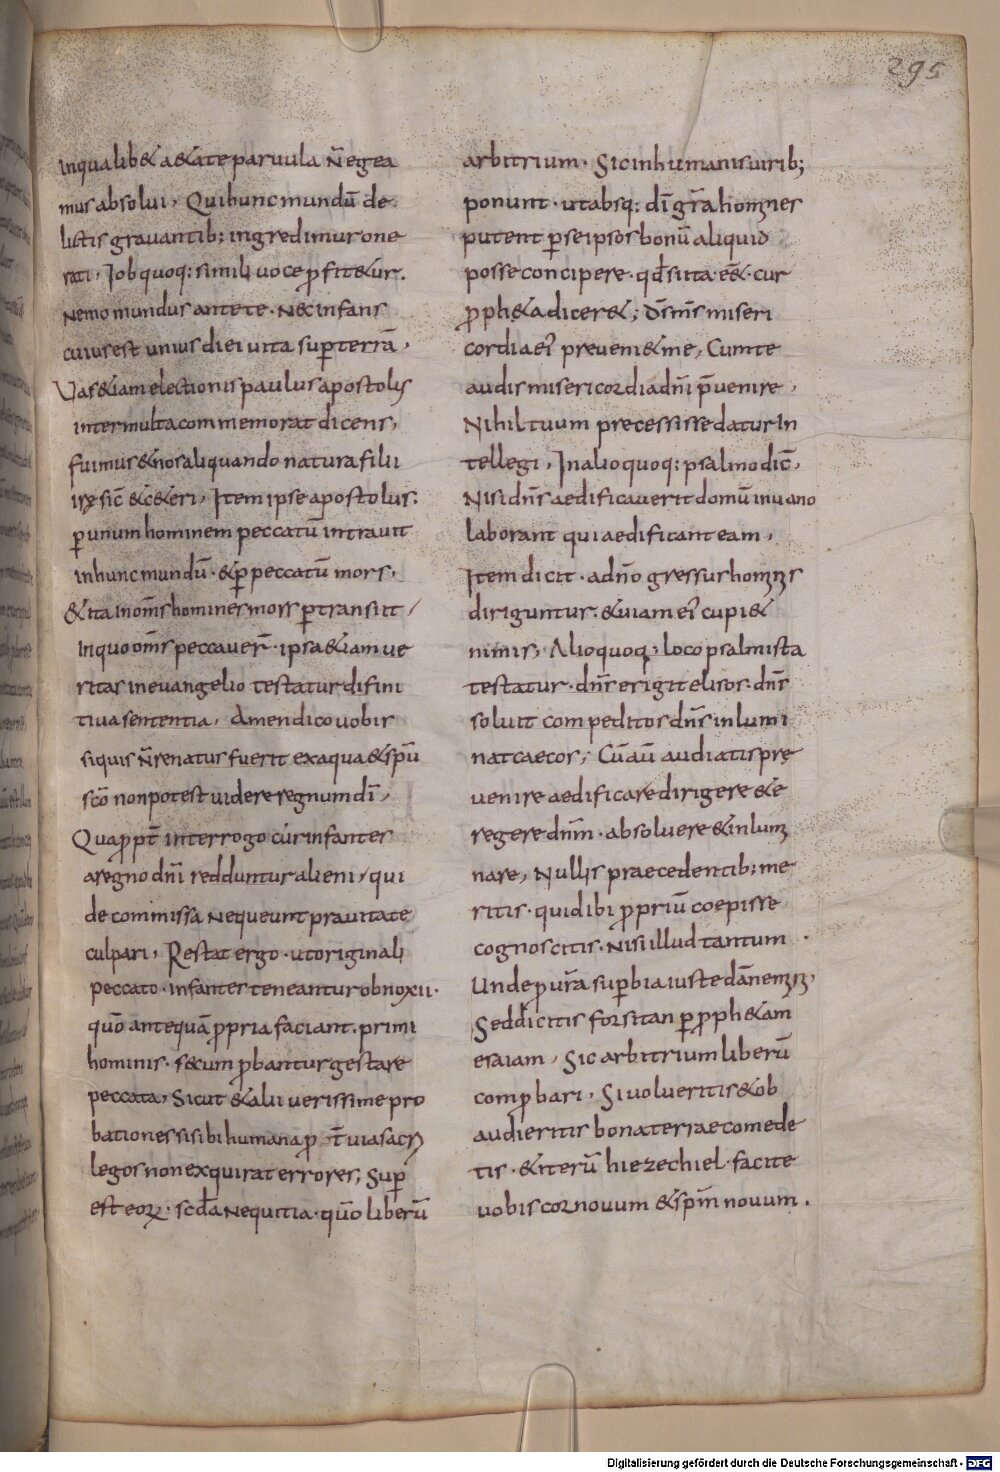 295
inqualib& a&ate paruula n̄ egea
mus absolui, Qui hunc mundū de
lictis grauantib; ingredimur one
rati, Iob quoq: simili uoce ꝓfit&ur.
Nemo mundus ante te. Nec infans
cuius est unius diei uita suꝑ terrā,
Vas &iam electionis paulus apostolus
inter multa commemorat dicens,
fuimus & nos aliquando natura filii
irę sic̄ & c&eri, Item ipse apostolus.
ꝑ unum hominem peccatū intrauit
in hunc mundū. & ꝑ peccatū mors,
& ita in om̄s homines mors ꝑtransiit
In quo om̄s peccauer̄. ipsa &iam ue
ritas in euangelio testatur difini
tiua sententia, Amen dico uobis
siquis n̄ renatus fuerit ex aqua & spū
sc̄o non potest uidere regnum dī,
Quaꝓpt̄ interrogo cur infantes
a regno dn̄i redduntur alieni, qui
de commissa nequeunt prauitate
culpari, Restat ergo. ut originali
peccato. infantes teneantur obnoxii.
quō antequā ꝓpria faciant. primi
hominis. secum ꝓbantur gestare
peccata, Sicut & alii uerissime pro
bationes sisibi humana ꝓ t̄uia sacꝝ
legos non exquirat errores, Suꝑ
est eoꝝ. sc̄da nequitia. quō liberū
arbitrium. Sic inhumanis uirib;
ponunt. ut absq: dī gr̄a homines
putent ꝑ se ipsos bonū aliquid
posse concipere. qd̄ si ita. ē&. cur
ꝓph&a dicer&; ds̄ ms̄ miseri
cordia ei' preueni& me, Cum te
audis misericordia dn̄i p̄uenire,
Nihil tuum precessisse datur in
tellegi, In alio quoq: psalmo dic̄,
Nisi dn̄s aedificauerit domū in uano
laborant qui aedificant eam,
Item dicit. a dn̄o gressus hominis
diriguntur. & uiam ei' cupi&
nimis, Alio quoq, loco psalmista
testatur. dn̄s erigit elisos. dn̄s
soluit compeditos dn̄s inlumi
nat caecos, Cū aū audiatis pre
uenire aedificare dirigere & e
regere dn̄m. absoluere & inlumi
nare, Nullis praecedentib; me
ritis. quid ibi ꝓpriū coepisse
cognoscitis. Nisi illud tantum
Unde ꝓ ur̄a suꝑbia iuste dānemini,
Sed dicitis forsitan ꝑ ꝓph&am
esaiam, Sic arbitrium liberū
comꝓbari, Si uolueritis & ob
audieritis bona terrae comede
tis. & iterū hiezechiel. facite
uobis cor nouum & spm̄ nouum.
Digitalisierung gefördert durch die Deutsche Forschungsgemeinschaft - DFG